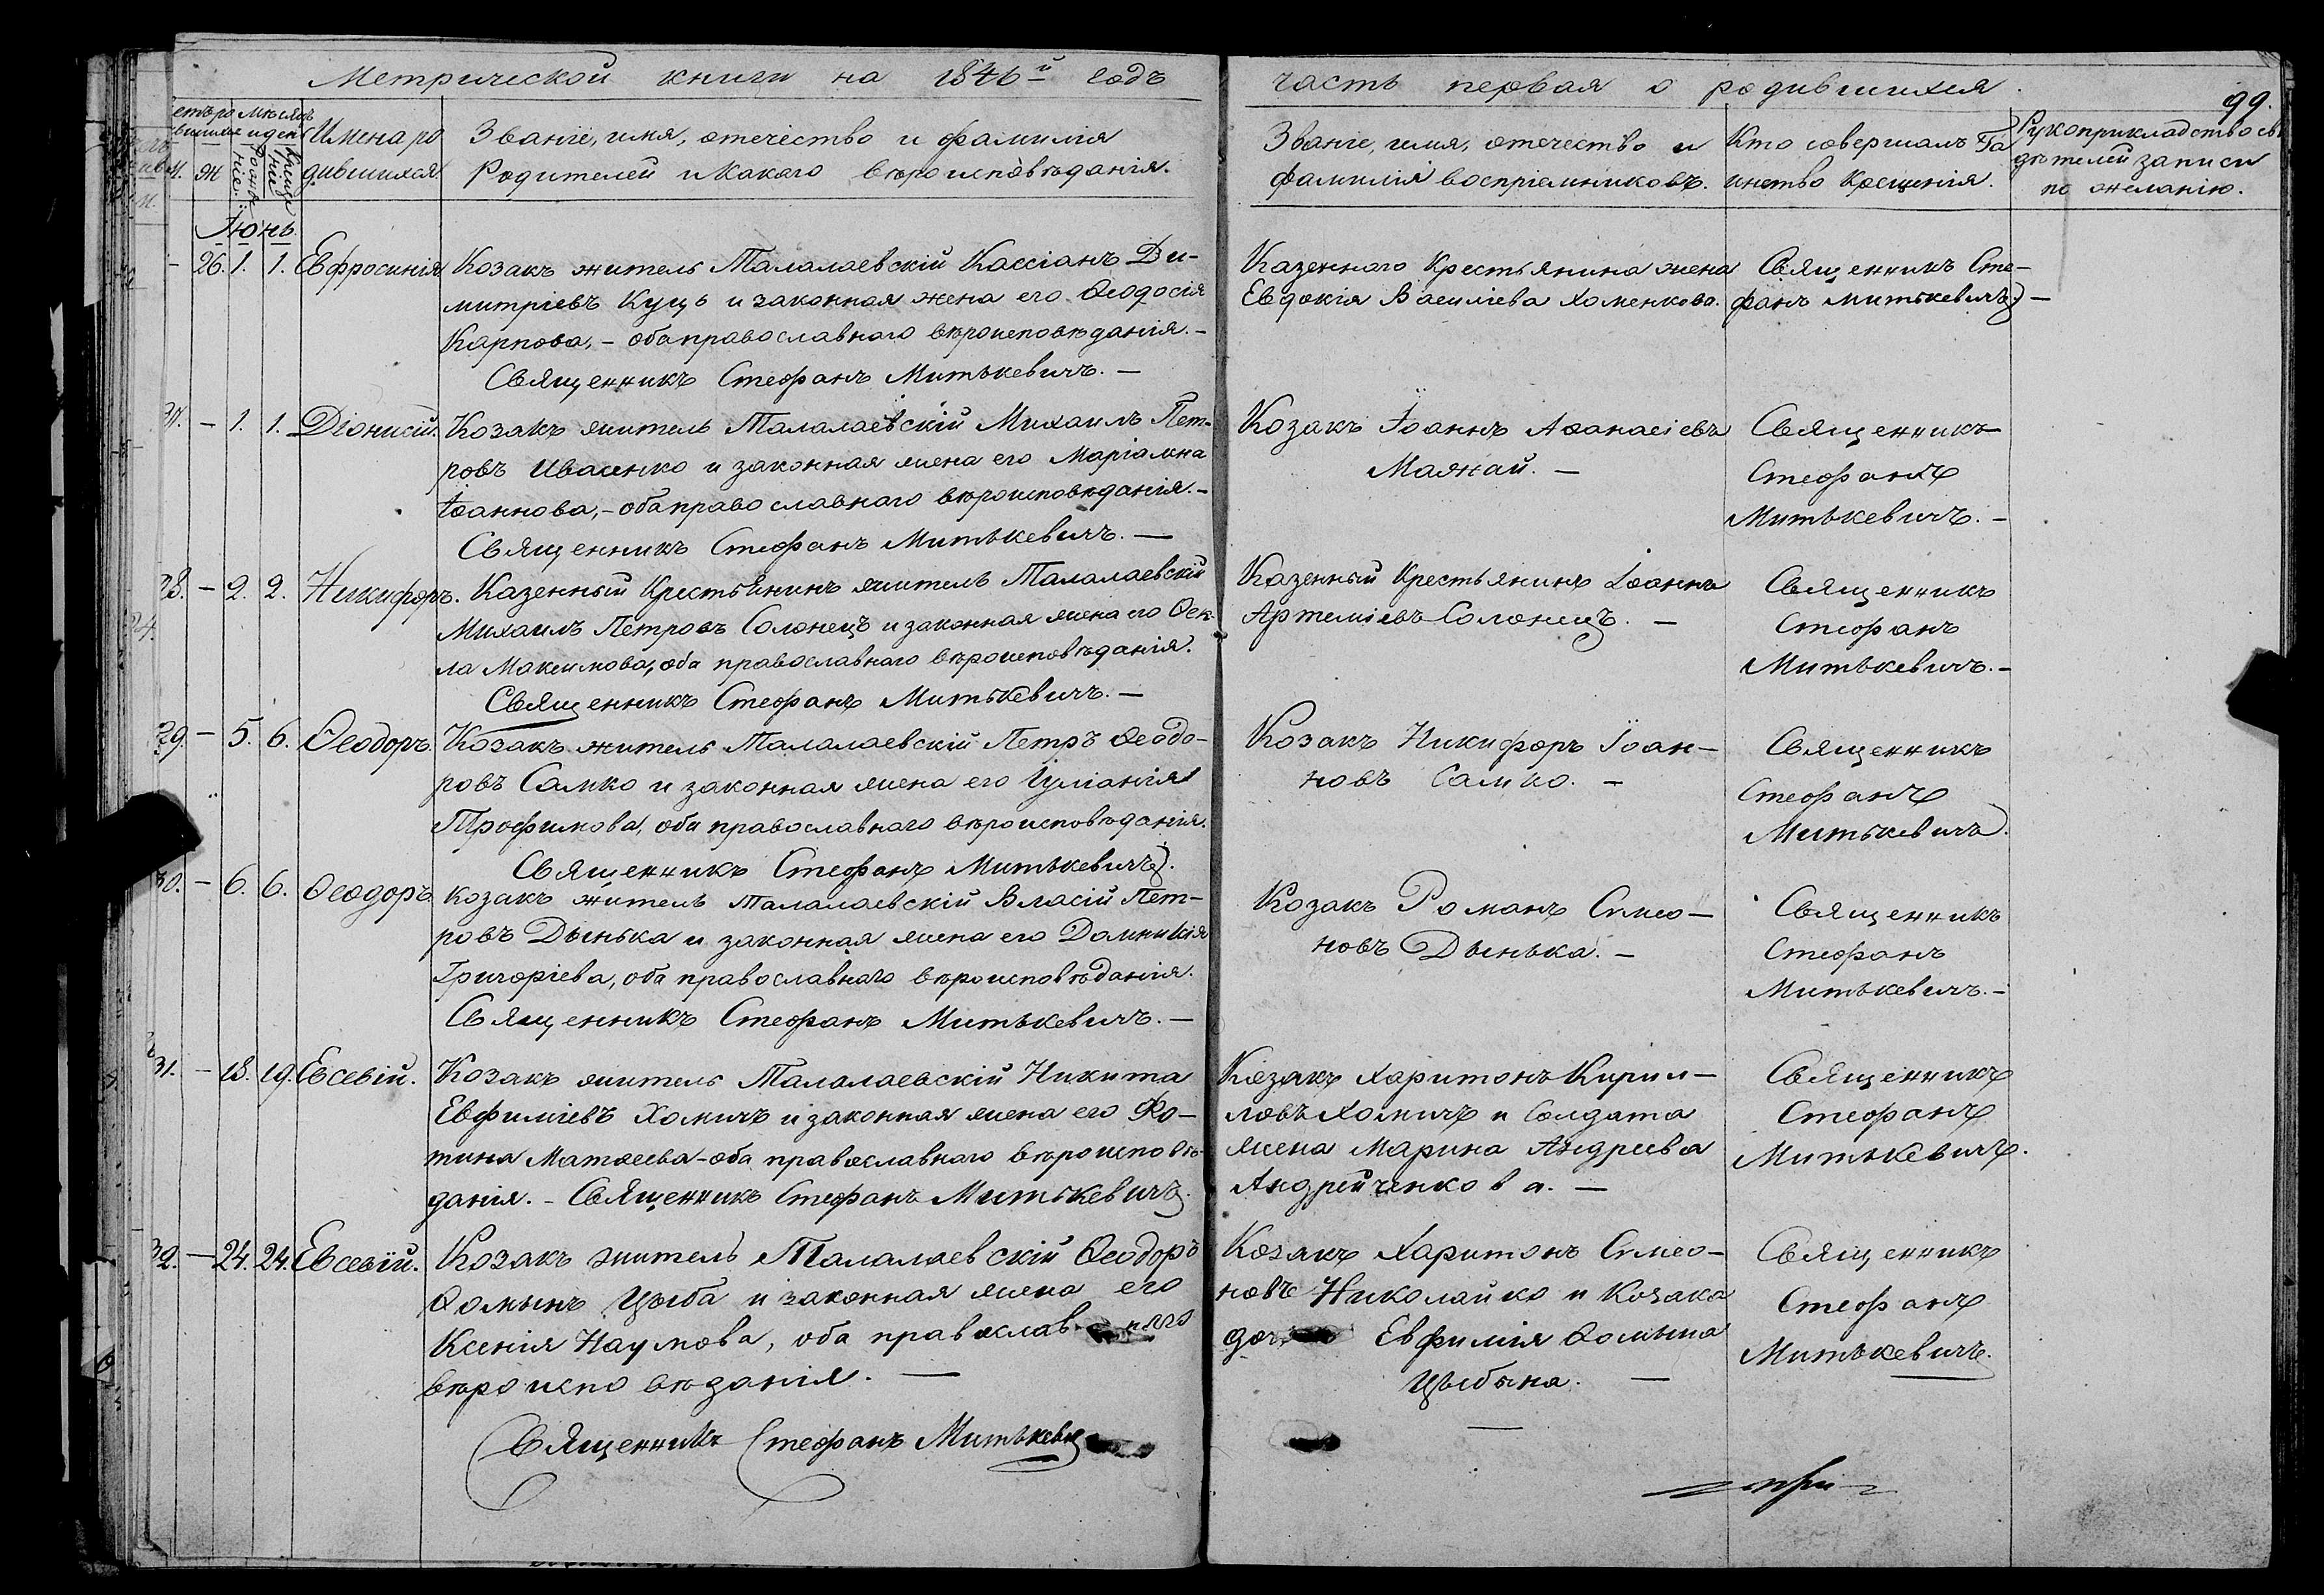 Метрической книги на 1846й годъ
часть первая о родившихся.
99.
Имена ро
дившихся.
Званіе, имя, отечество и фамилія
Родителей и какого вѣроисповѣданія.
Званіе, имя, отечество и
фамилія воспріемниковъ.
Кто совершалъ Та
инство Крещенія.
Рукоприкладство сви
дѣтелей записи
по желанію.
М. Ж.
Іюнь.
- 26. 1. 1. Евфросинія
Козакъ житель Талалаевскій Кассіанъ Ди-
митріевъ Куць и законная жена его Ѳеодосія
Карпова, - оба православнаго вѣроисповѣданія. -
Священникъ Стефанъ Митькевичъ. -
Казеннаго Крестьянина жена
Евдокія Василіева Хоменкова.
Священникъ Сте-
фанъ Митькевичъ -
- 1. 1. Діонисій.
Козакъ житель Талалаевскій Михаилъ Пет-
ровъ Иващенко и законная жена его Маріамна
Іоаннова, - оба православнаго вѣроисповѣданія. -
Священникъ Стефанъ Митькевичъ. -
Козакъ Іоаннъ Аѳанасіевъ
Мажай. -
Священникъ
Стефанъ
Митькевичъ. -
28. - 2. 2. Никифоръ.
Казенный Крестьянинъ житель Талалаевскій
Михаилъ Петровъ Солонецъ и законная жена его Ѳек-
ла Максимова, оба православнаго вѣроисповѣданія.
Священникъ Стефанъ Митькевичъ. -
Казенный Крестьянинъ Іоаннъ
Артеміевъ Солонецъ. -
Священникъ
Стефанъ
Митькевичъ. -
29. - 5. 6. Ѳеодоръ.
Козакъ житель Талалаевскій Петръ Ѳеодо-
ровъ Самко и законная жена его Іуліанія
Трофимова, оба православнаго вѣроисповѣданія.
Священникъ Стефанъ Митькевичъ.
Козакъ Никифоръ Іоан-
новъ Самко. -
Священникъ
Стефанъ
Митькевичъ.
30. - 6. 6. Ѳеодоръ
Козакъ житель Талалаевскій Власій Пет-
ровъ Дынька и законная жена его Домникія
Григоріева, оба православнаго вѣроисповѣданія.
Священникъ Стефанъ Митькевичъ. -
Козакъ Романъ Симео-
новъ Дынька. -
Священникъ
Стефанъ
Митькевичъ. -
31. - 18. 19. Евсевій.
Козакъ житель Талалаевскій Никита
Евфиміевъ Хомичъ и законная жена его Фо-
тина Матѳеева - оба православнаго вѣроисповѣ-
данія. - Священникъ Стефанъ Митькевичъ.
Козакъ Харитонъ Кирил-
ловъ Хомичъ и Солдата
жена Марина Андреева
Андрейченкова. -
Священникъ
Стефанъ
Митькевичъ.
32. - 24. 24. Евсевій.
Козакъ житель Талалаевскій Ѳеодоръ
Ѳоминъ Цыба и законная жена его
Ксенія Наумова, оба православнаго
вѣроисповѣданія. -
Священникъ Стефанъ Митькевичъ
Козакъ Харитонъ Симео-
новъ Николайко и Козака
Евфимія Ѳомина
Цыбына. -
Священникъ
Стефанъ
Митькевичъ.